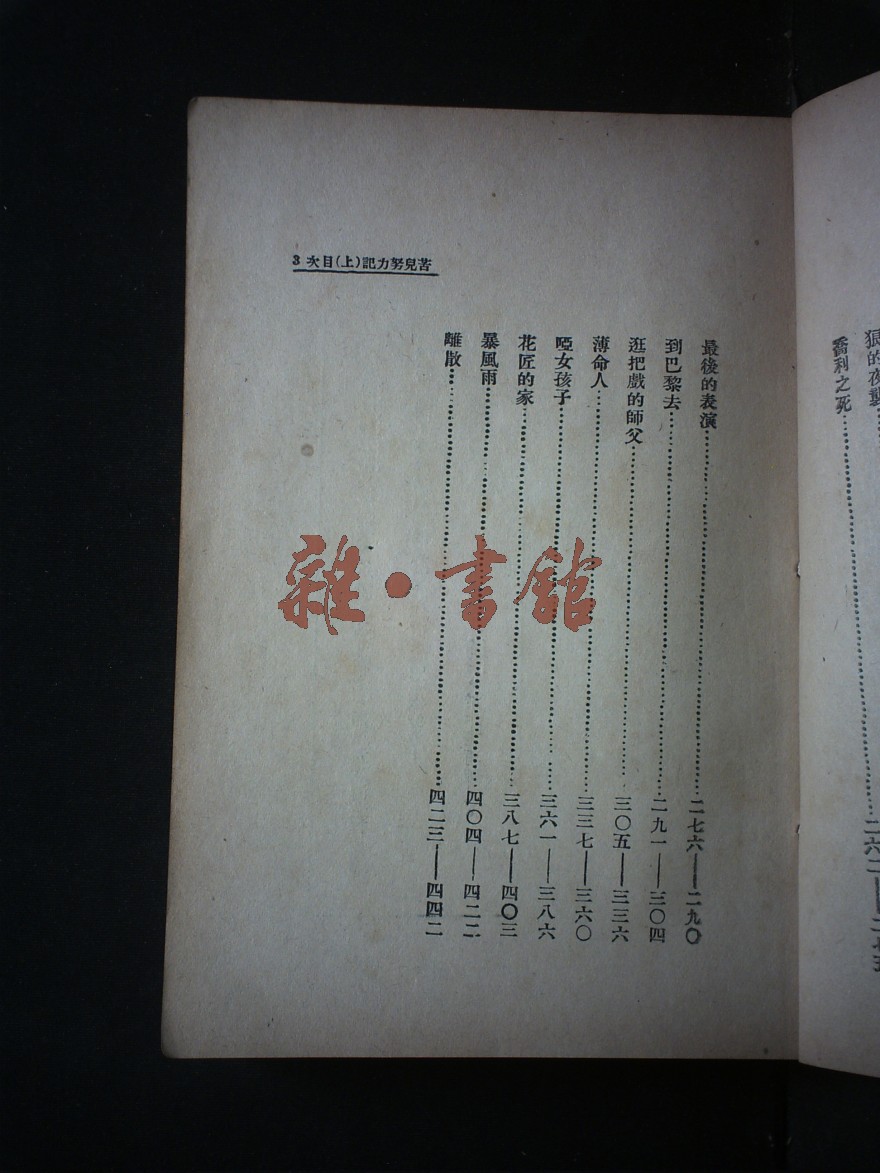 3 次目(上)記力努兒苦
最後的表演……二七六——二九〇
到巴黎去……二九一——三〇四
逛把戲的師父……三〇五——三三六
薄命人……三三七——三六〇
啞女孩子……三六一——三八六
花匠的家……三八七——四〇三
暴風雨……四〇四——四二二
離散……四二三——四四二
狼的夜襲
喬利之死……二六二——二七五
雜·書館